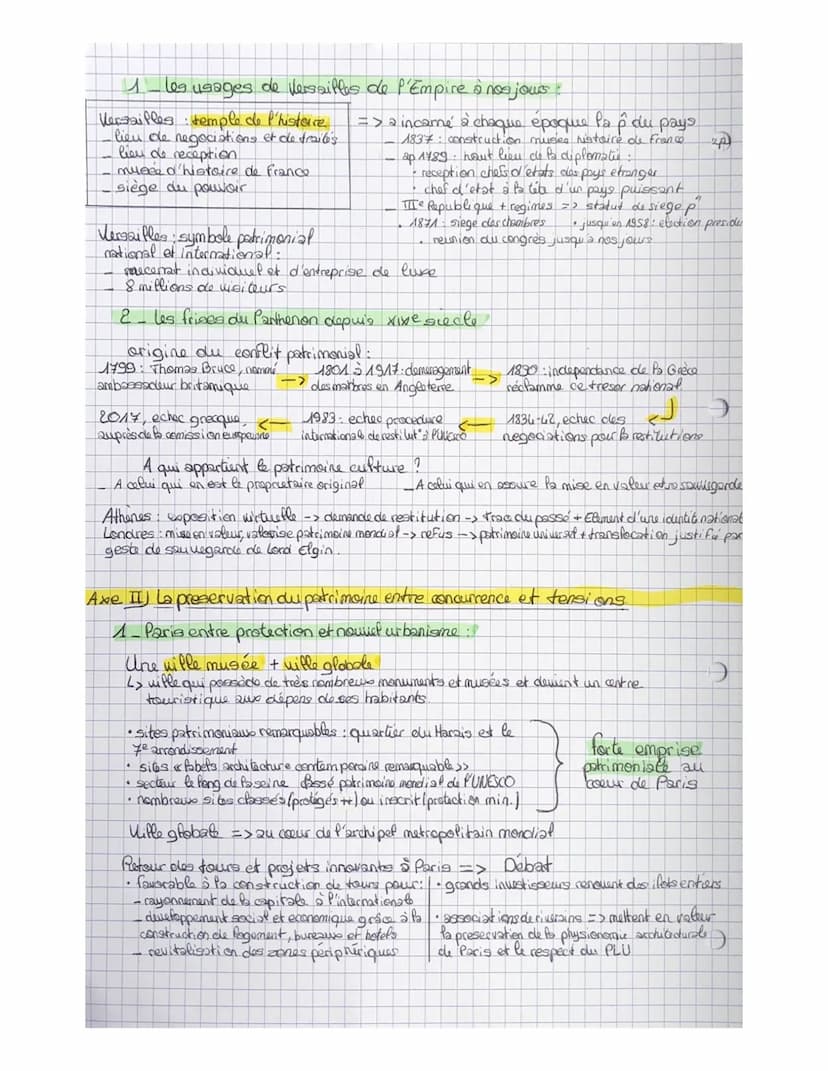 1 - les usages de Versailles de l'Empire à nos jours :
Versailles : temple de l'histoire
- lieu de negociations et de traités
- lieu de reception
- musée d'histoire de France
- siège du pouvoir
=> a incarné à chaque époque la p̂ du pays
- 1837 : construction musée histoire de France
- ap 1789 : haut lieu de la diplomatie :
• réception chefs d'états des pays etranger
• chef d'etat à la tête d'un pays puissant
- IIIe Republique + regimes => statut de siege p°
• 1871 : siege des chambres • jusqu'en 1958 : election preside
• reunion du congrès jusqu'à nos jours
Versailles : symbole patrimonial
national et international :
- mecenat individuel et d'entreprise de luxe
- 8 millions de visiteurs
2 - les frises du Parthenon depuis XIXe siecle
origine du conflit patrimonial :
1799 : Thomas Bruce, nommé
ambassadeur britanique
->
1801 à 1917 : demenagement
des marbres en Angleterre
->
1830 : independance de la Grèce
réclamme ce tresor national
1834-42, echec des
negociations pour la restitutions
<-
1983 : echec procedure
internationale de restitut° à l'UNESCO
<-
2017, echec grecque
auprès de la comission europeenne
A qui appartient le patrimoine culture ?
- A celui qui en est le proprietaire original
- A celui qui en assure la mise en valeur et sa sauvegarde
Athènes : exposition virtuelle -> demande de restitution -> trace du passé + Element d'une identité national
Londres : mise en valeur, valorise patrimoine mondial -> refus -> patrimoine universel + translocation justifié par
geste de sauvegarde de Lord Elgin.
Axe II) La preservation du patrimoine entre concurrence et tensions
1 - Paris entre protection et nouvel urbanisme :
Une ville musée + ville globale
↳ ville qui possède de très nombreux monuments et musées et devient un centre
touristique aux dépens de ses habitants.
• sites patrimoniaux remarquables : quartier du Marais et le
7e arrondissement
• sites « labels architecture contemporaine remarquable »
• secteur le long de la seine classé patrimoine mondial de l'UNESCO
• nombreux sites classés (protégés ++) ou inscrit (protection min.)
forte emprise
patrimoniale au
coeur de Paris
Ville globale => au coeur de l'archipel metropolitain mondial
Retour des tours et projets innovants à Paris => Débat
• favorable à la construction de tours pour :
- rayonnement de la capitale à l'internationale
- developpement social et economique grâce à la
construction de logement, bureaux et hotels
- revitalisation des zones périphériques
• grands investisseurs renouent des ilots entiers
• associations de riverains => mettent en valeur
la preservation de la physionomie architecturale
de Paris et le respect du PLU